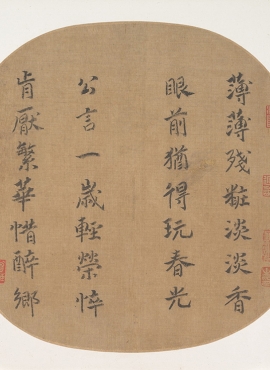 薄薄殘粧淡淡香
眼前猶得玩春光
公言一歳輕榮悴
肯厭繁華惜醉鄉